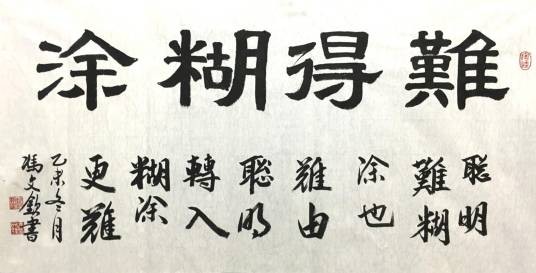 難得糊涂
聪明
難糊
涂也
難由
聪明
轉入
糊涂
更難
乙未冬月
馮文欽書